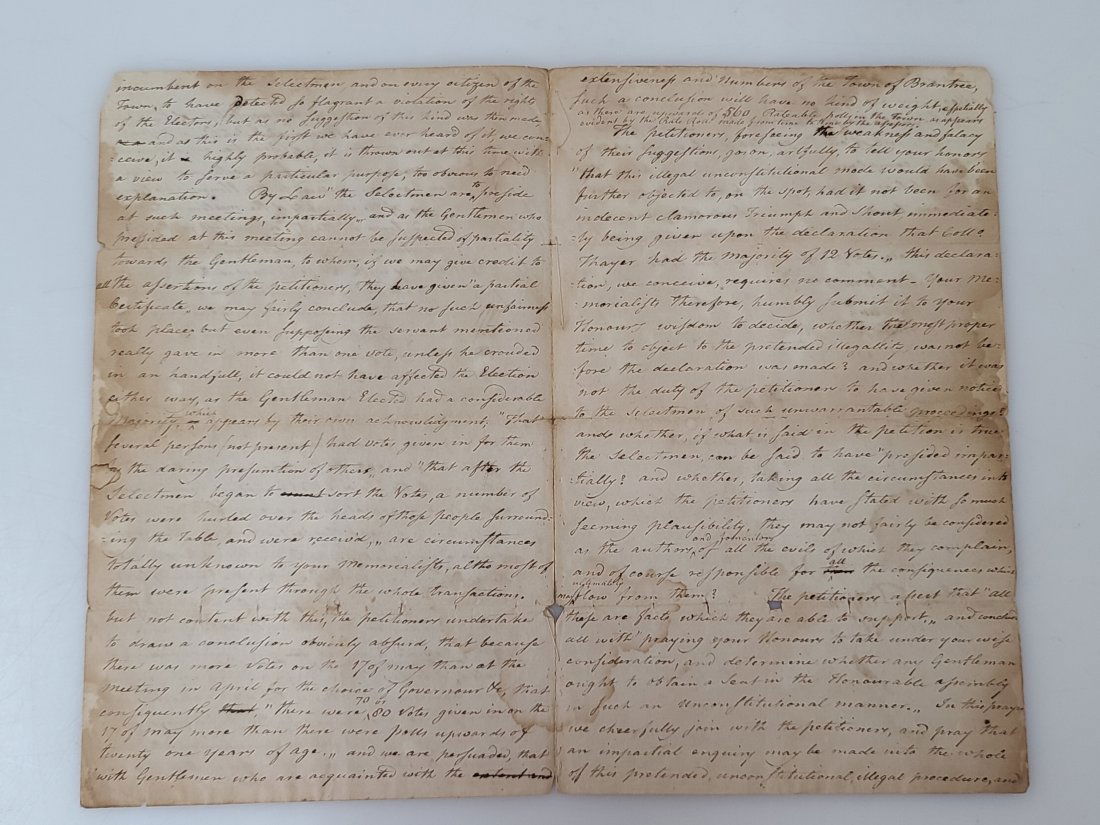 incumbent on the Selectmen, and on every citizen of the
Town, to have detected so flagrant a violation of the rights
of the Electors, but as no suggestion of this kind was then made,
and as this is the first we have ever heard of it, we con-
-ceive, it highly probable, it is thrown out at this time with
a view to serve a particular purpose, too obvious to need
explanation. By Law "the Selectmen are to preside
at such meetings, impartially" and as the Gentlemen who
presided at this meeting cannot be suspected of partiality
towards the Gentleman, to whom, if we may give credit to
all the assertions of the petitioners, they have given "a partial
Certificate" we may fairly conclude, that no such unfairness
took place, but even supposing the servant mentioned
really gave in more than one vote, unless he crouded
in an handfull, it could not have affected the Election
either way, as the Gentleman Elected had a considerable
Majority, which appears by their own acknowledgment, "That
several persons (not present) had votes given in for them
by the daring presumtion of others, and "that after the
Selectmen began to sort the Votes, a number of
Votes were hurled over the heads of those people surround-
-ing the Table, and were receiv'd," are circumstances
totally unknown to your Memorialists, altho most of
them were present through the whole transactions.
but not content with this, the petitioners undertake
to draw a conclusion obviously absurd, that because
there was more Votes on the 17 of may than at the
meeting in April for the choice of Governour &c, that
consequently that "there were 70 or 80 votes given in on the
17 of may more than there were polls upwards of
twenty one years of age," and we are persuaded, that
with Gentlemen who are acquainted with the extent and
extensiveness and Numbers of the Town of Braintree,
such a conclusion will have no kind of weight, especially
as there are upwards of 560, Rateable polls in the Town as appears
evident by the made from time to time by the assessors
The petitioners, foreseeing the weakness and falacy
of their suggestions, go on, artfully, to tell your honors
"that this illegal unconstitutional mode would have been
further objected to, on the spot, had it not been for an
indecent clamorous Triumph and Shout immediate-
-ly being given upon the declaration that Collo
Thayer had the majority of 12 Votes," this declara-
-tion, we conceive, requires no comment - Your Me-
-morialists therefore, humbly submit it to your
Honours wisdom to decide, whether the most proper
time to object to the pretended illegallity, was not be-
fore the declaration was made? and whether it was
not the duty of the petitioners to have given notice
to the Selectmen of such unwarrantable proceedings?
and whether, if what is said in the petition is true
the Selectmen, can be said to have "presided impar-
tially? and whether, taking all the circumstances into
view, which the petitioners have stated with so much
seeming plausibility, they may not fairly be considered
as the authors and promoters of all the evils of which they complain,
and of course responsible for all the consequences which
may ultimately flow from them? The petitioners assert that "all
these are facts, which they are able to support," and conclude
all with "praying your Honours to take under your wise
consideration, and determine whether any Gentleman
ought to obtain a Seat in the Honourable assembly
in such an Unconstitutional manner." In this prayer
we cheerfully join with the petitioners, and pray that
an impartial enquiry may be made into the whole
of this pretended, unconstitutional, illegal procedure, and